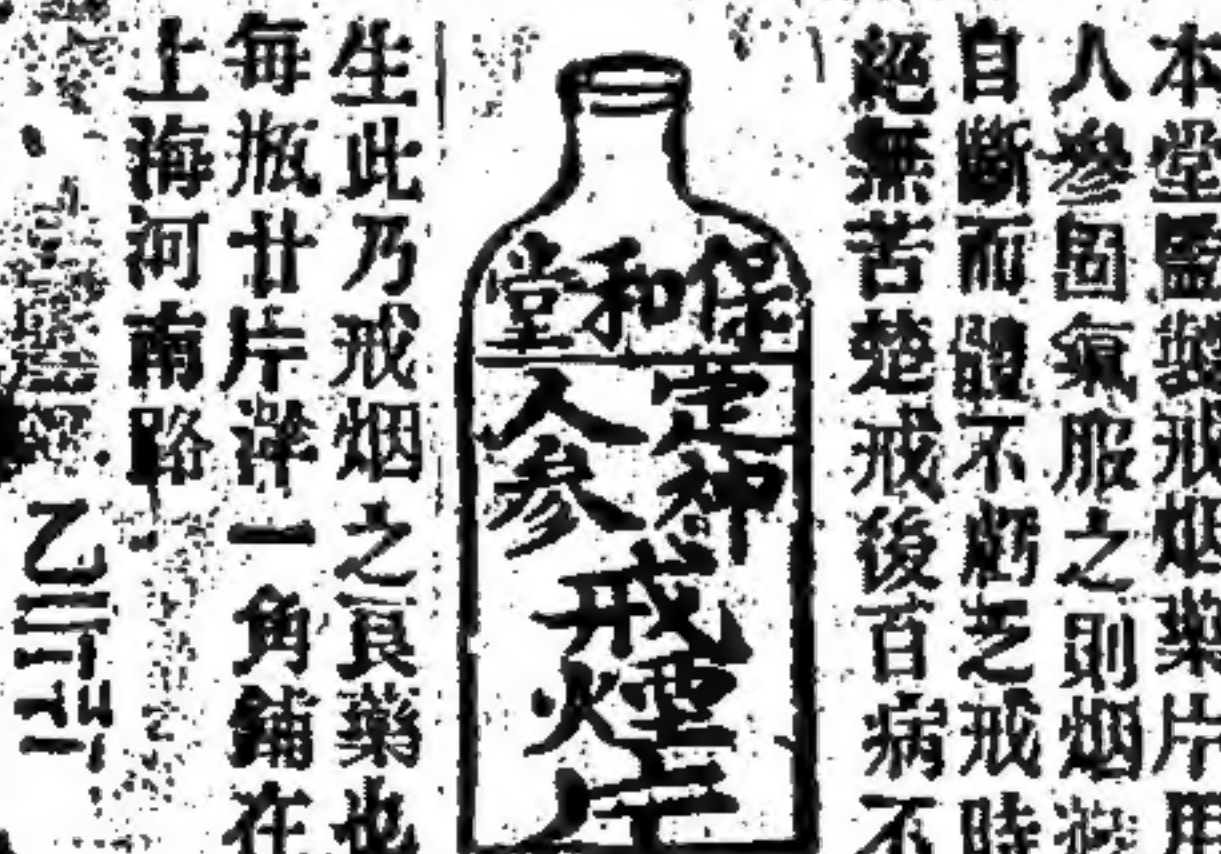 本堂監製戒烟藥片用
人參固氣服之則烟
自斷而體不虧乏戒時
絕無苦楚戒後百病不
保和堂
定神
人参
戒煙片
生此乃戒烟之良藥也
每瓶廿片洋一角鋪在
上海河南路